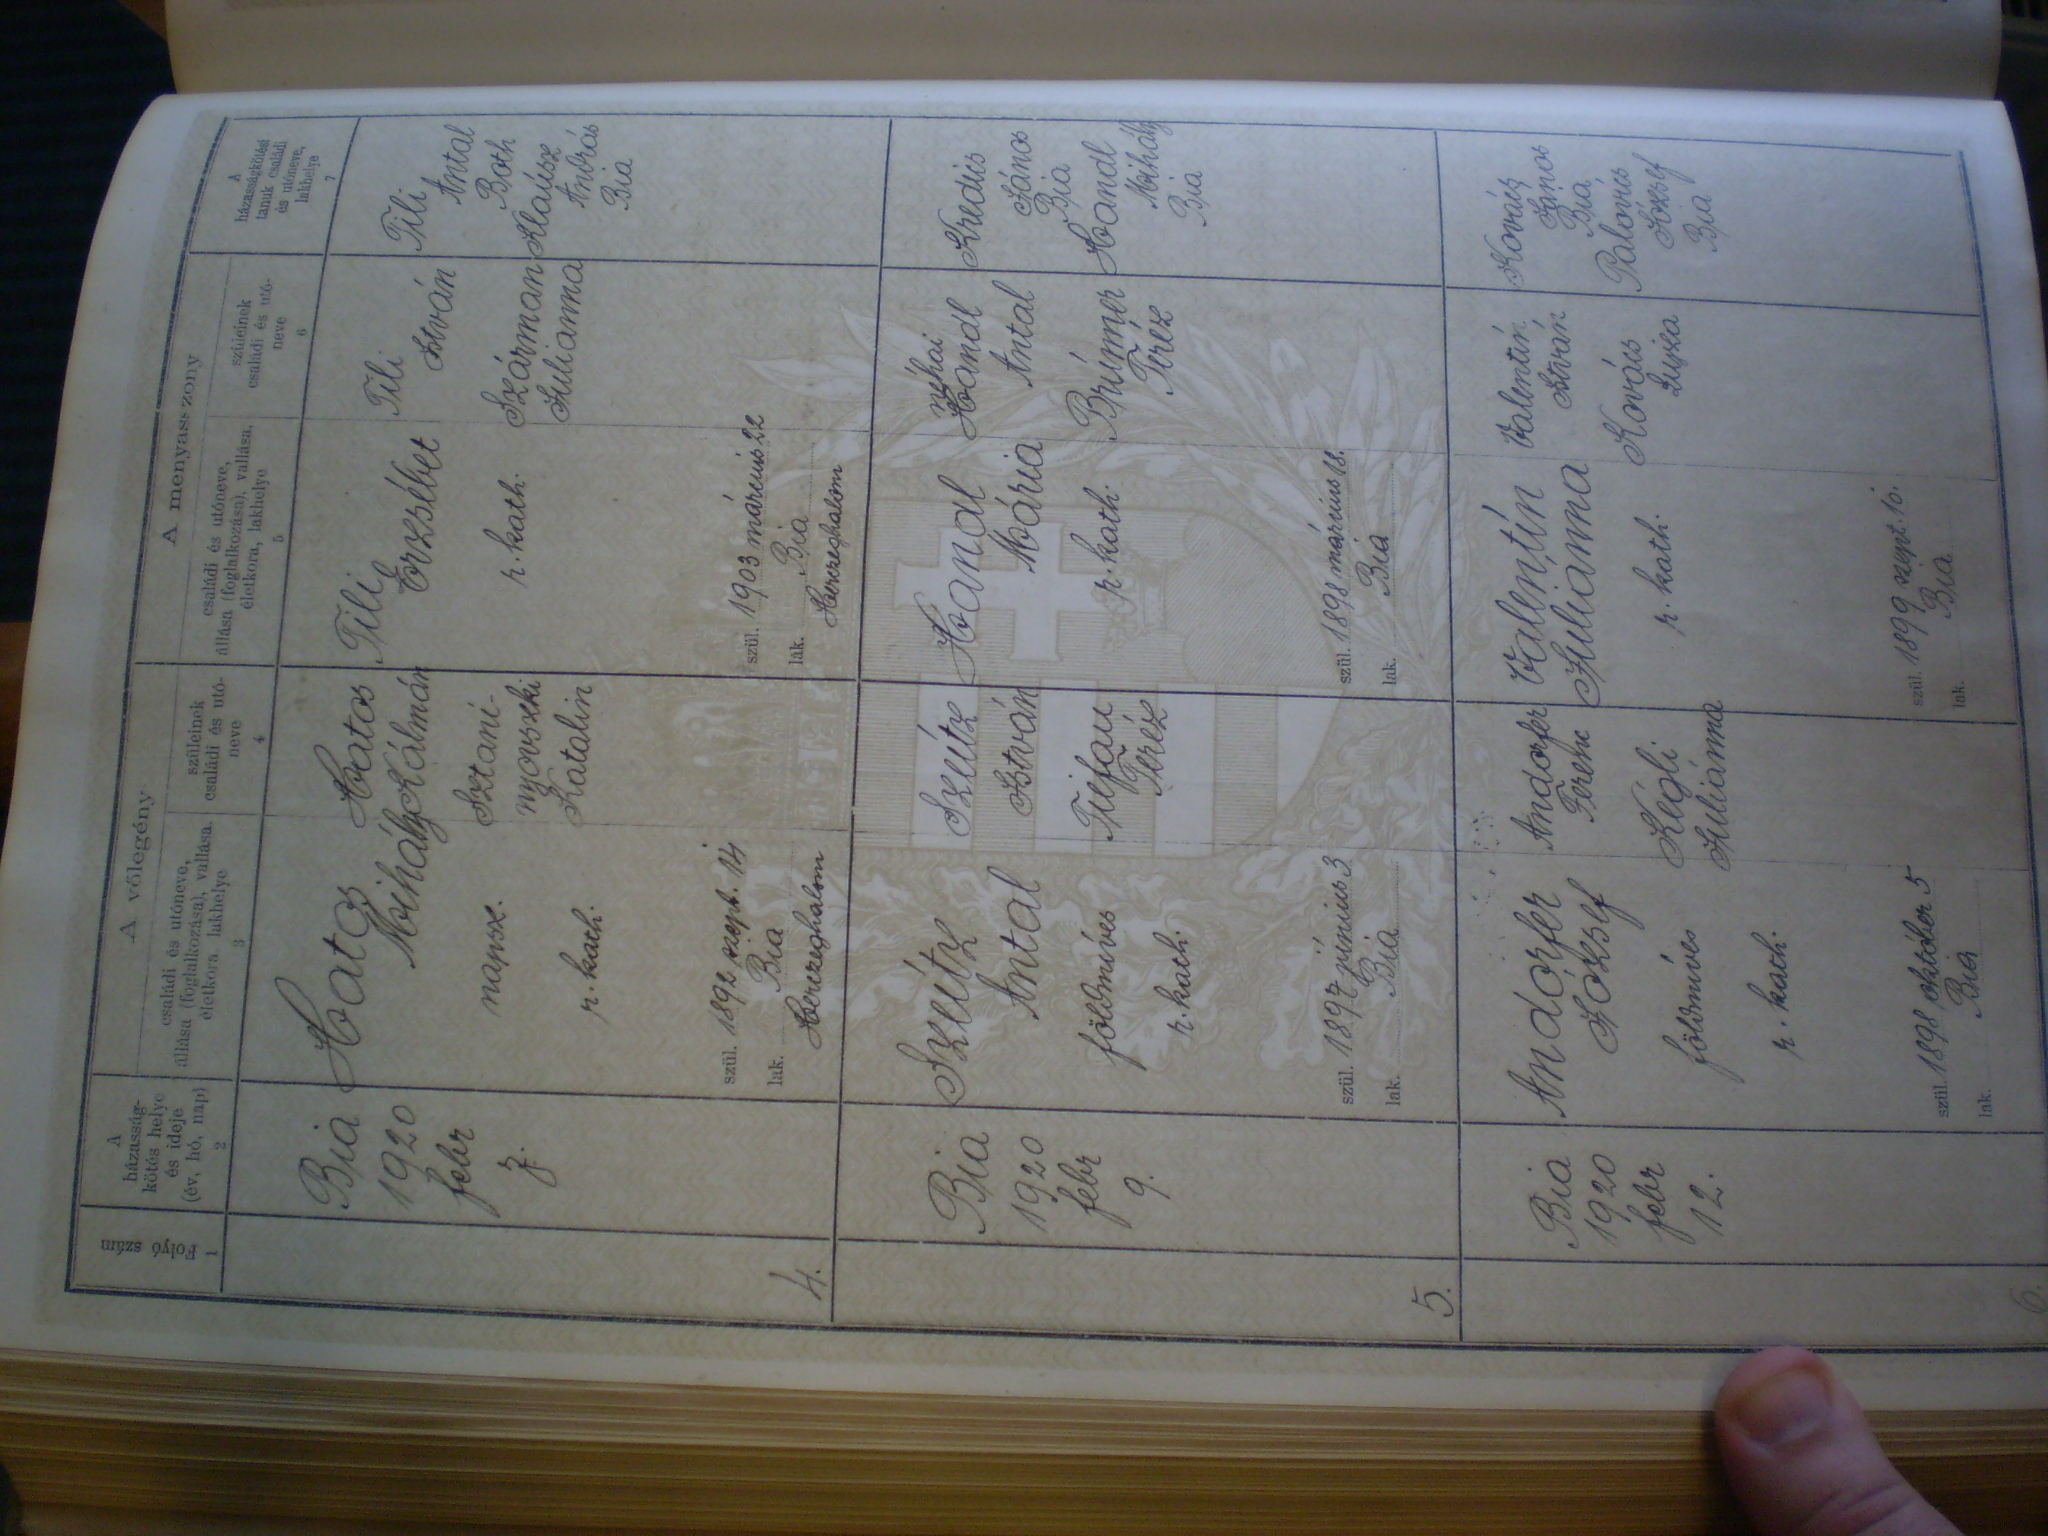 Folyó szám
1
A házasság-
kötés helye
és ideje
(év, hó, nap)
2
A vőlegény
családi és utóneve,
állása (foglalkozása), vallása,
életkora, lakhelye
3
szüleinek
családi és utó-
neve
4
A menyasszony
családi és utóneve,
állása (foglalkozása), vallása,
életkora, lakhelye
5
szüleinek
családi és utó-
neve
6
A
házasságkötési
tanuk családi
és utóneve,
lakhelye
7
4.
Bia
1920
febr
7.
Hatos
Mihály
napsz.
r. kath.
szül. 1892 szept. 14
lak. Bia
Herczeghalom
Hatos
Kálmán
Sztani-
nyovszki
Katalin
Tili
Erzsébet
r. kath.
szül. 1903 márczius 22
lak. Bia
Herczeghalom
Tili
István
Szárman
Julianna
Tili
Antal
Both
Klausz
András
Bia
5.
Bia
1920
febr
9.
Szeitz
Antal
földmíves
r. kath.
szül. 1897 június 3
lak. Bia
Szeitz
István
Trefau
Teréz
Handl
Mária
r. kath.
szül. 1898 márczius 18.
lak. Bia
néhai
Handl
Antal
Brümmer
Teréz
Kredis
János
Bia
Handl
Mihály
Bia
6.
Bia
1920
febr
12.
Andorfer
József
földmíves
r. kath.
szül. 1898 október 5
lak. Bia
Andorfer
Ferenc
Kégli
Juliánna
Valentin
Julianna
r. kath.
szül. 1899 szept. 10.
lak. Bia
Valentin
István
Kovács
Luiza
Kovács
János
Bia
Palovics
József
Bia